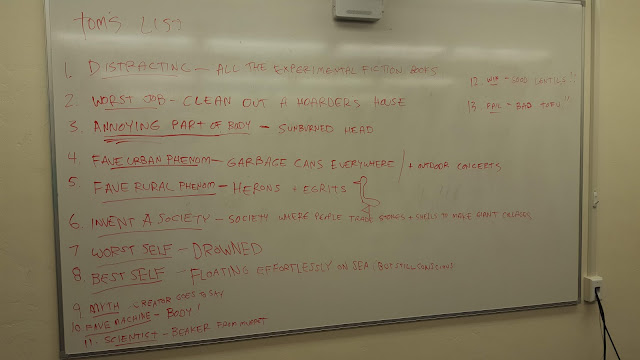 TOM'S LIST
1. DISTRACTING - ALL THE EXPERIMENTAL FICTION BOOKS
2. WORST JOB - CLEAN OUT A HOARDER'S HOUSE
3. ANNOYING PART OF BODY - SUNBURNED HEAD
4. FAVE URBAN PHENOM - GARBAGE CANS EVERYWHERE / + OUTDOOR CONCERTS
5. FAVE RURAL PHENOM - HERONS + EGRITS
6. INVENT A SOCIETY - SOCIETY WHERE PEOPLE TRADE STONES + SHELLS TO MAKE GIANT
7. WORST SELF - DROWNED
8. BEST SELF - FLOATING EFFORTLESSLY ON SEA (BUT STILL CONSCIOUS)
9. MYTH CREATOR GOES TO SAY
10. FAVE MACHINE - BODY!
11. SCIENTIST - BEAKER FROM MUPPET
12. WIN - GOOD LENTILS!"
13. FAIL - BAD TOFU"